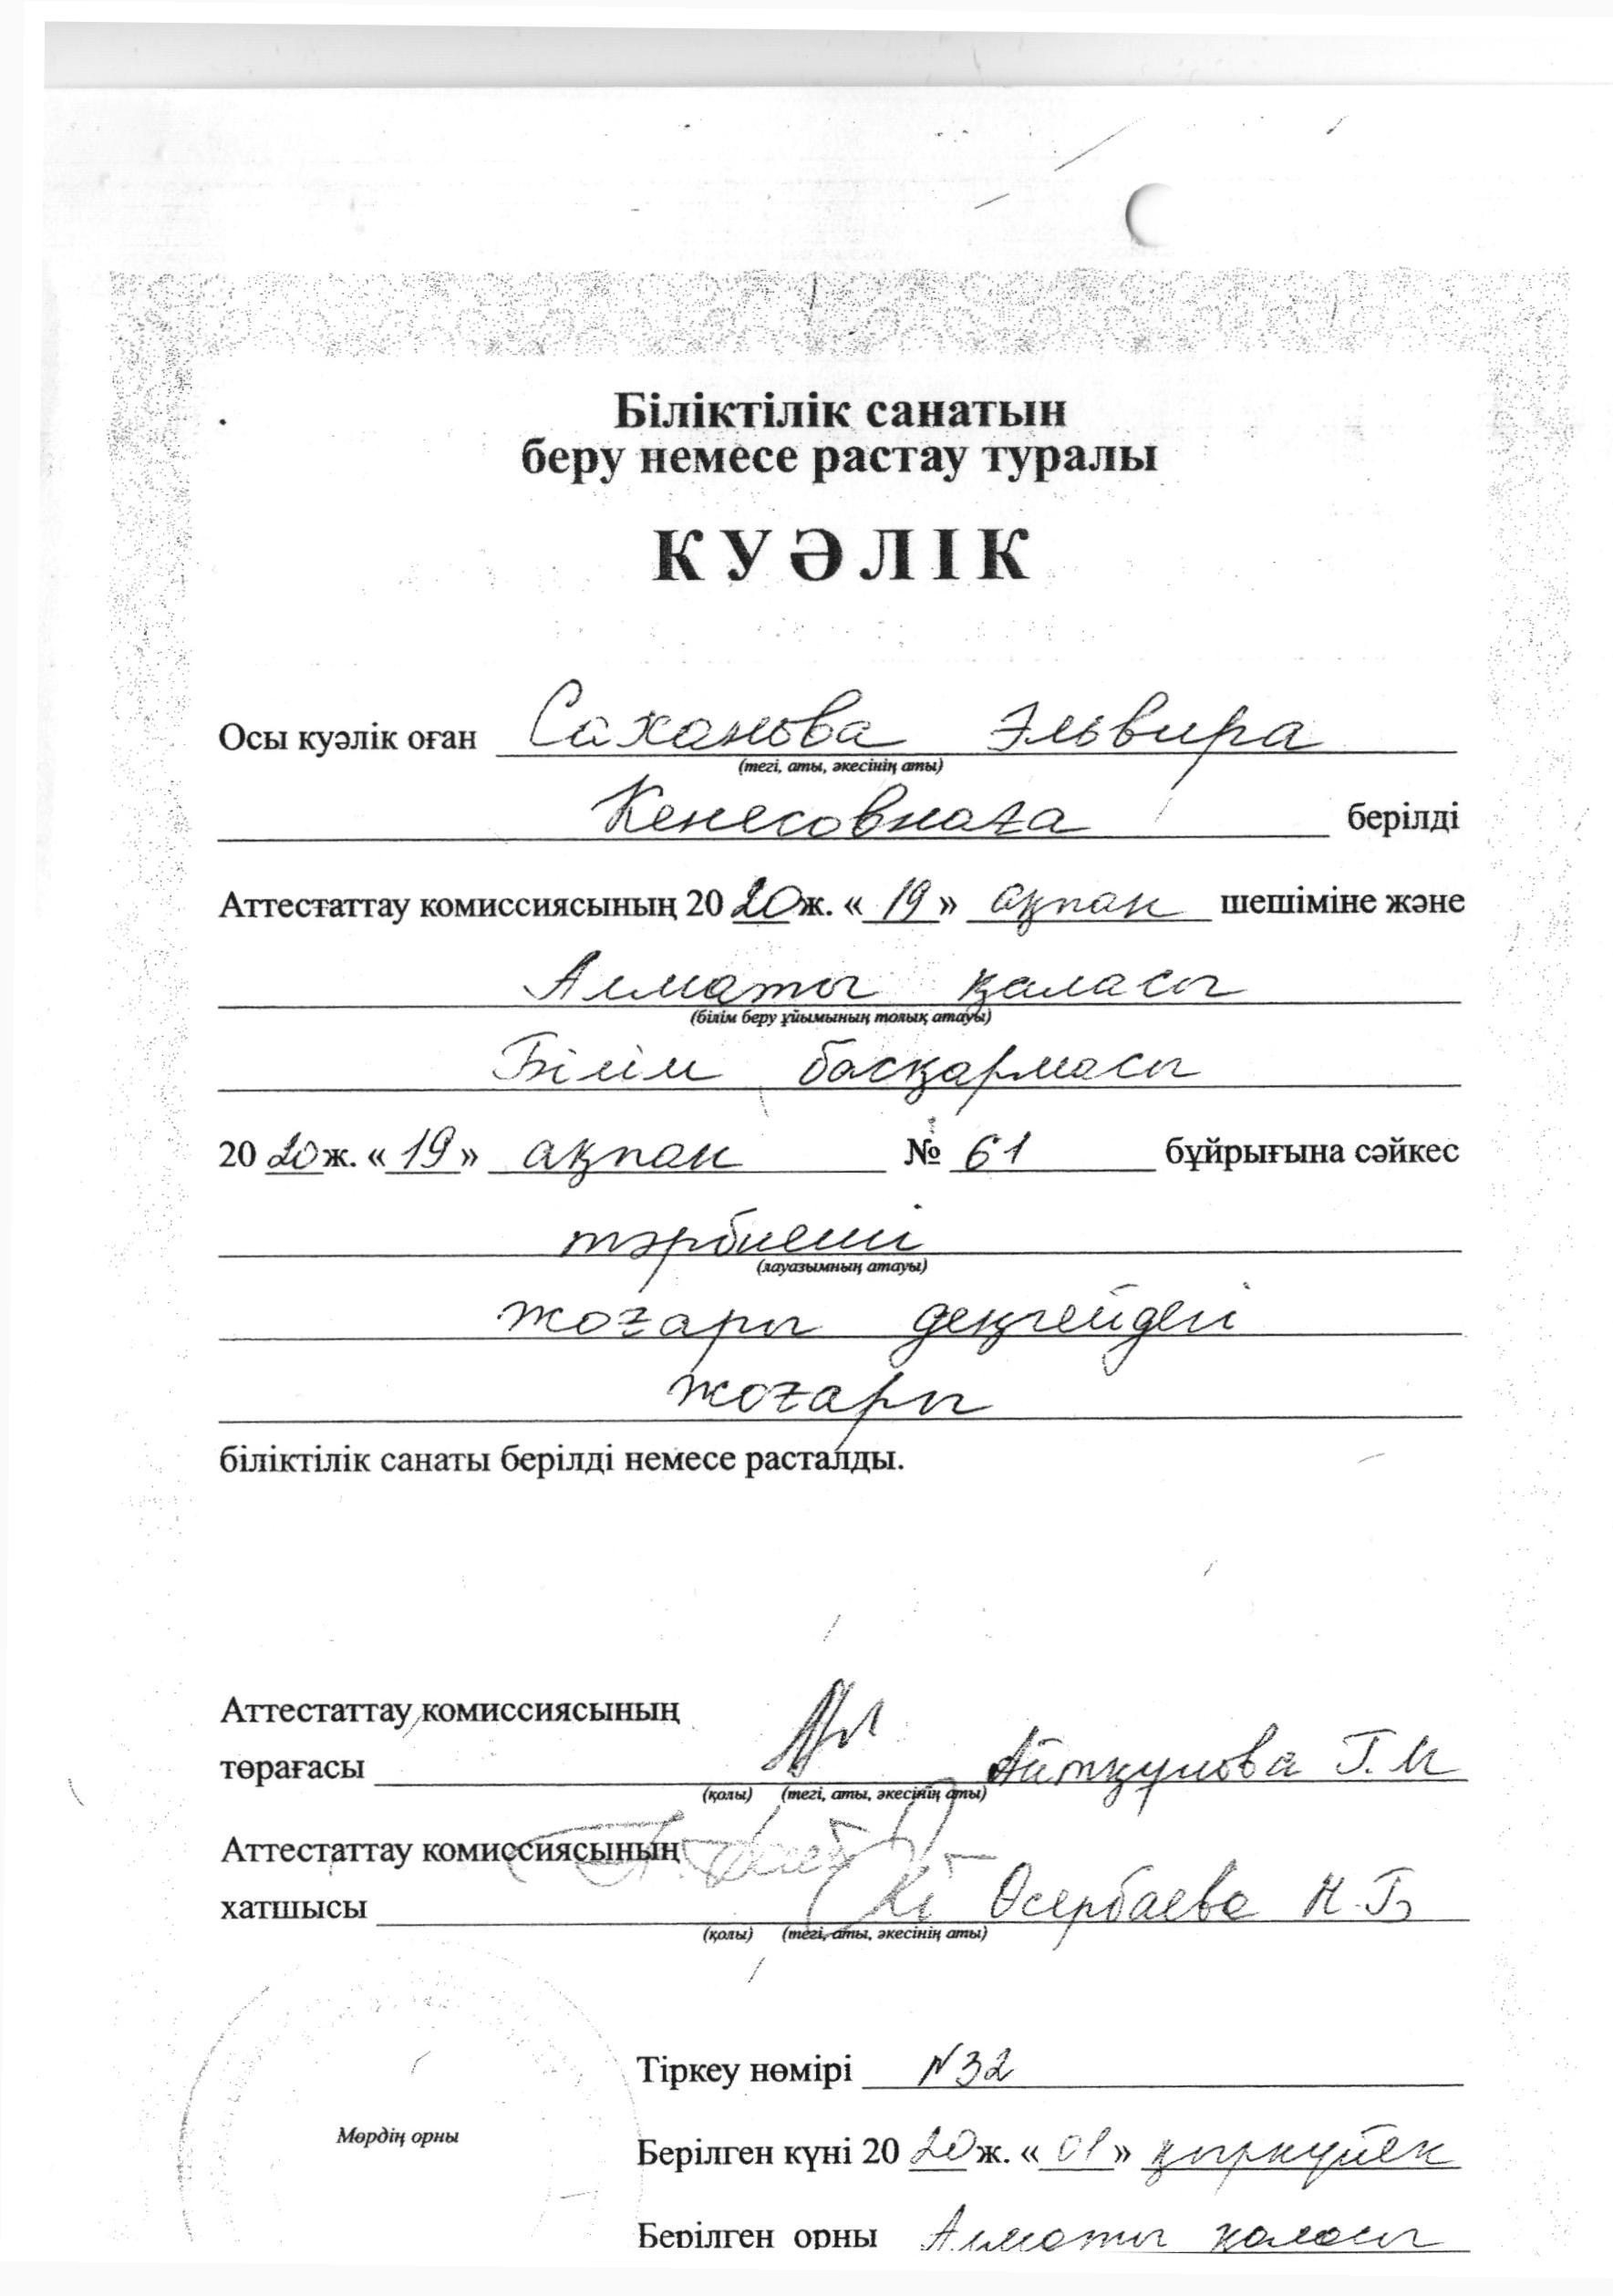 Біліктілік санатын
беру немесе растау туралы
КУӘЛІК
Осы куәлік оған Саханова Эльвира
(тегі, аты, әкесінің аты)
Кенесовнаға берілді
Аттестаттау комиссиясының 2020 ж. «19» ақпан шешіміне және
Алматы қаласы
(білім беру ұйымының толық атауы)
Білім басқармасы
2020 ж. «19» ақпан № 61 бұйрығына сәйкес
тәрбиеші
(лауазымның атауы)
жоғары деңгейдегі
жоғары
біліктілік санаты берілді немесе расталды.
Аттестаттау комиссиясының
төрағасы Айтқулова Г.И
(қолы) (тегі, аты, әкесінің аты)
Аттестаттау комиссиясының
хатшысы Өсербаева Н.Б
(қолы) (тегі, аты, әкесінің аты)
Тіркеу нөмірі N32
Мөрдің орны
Берілген күні 2020 ж. «01» қыркүйек
Берілген орны Алматы қаласы